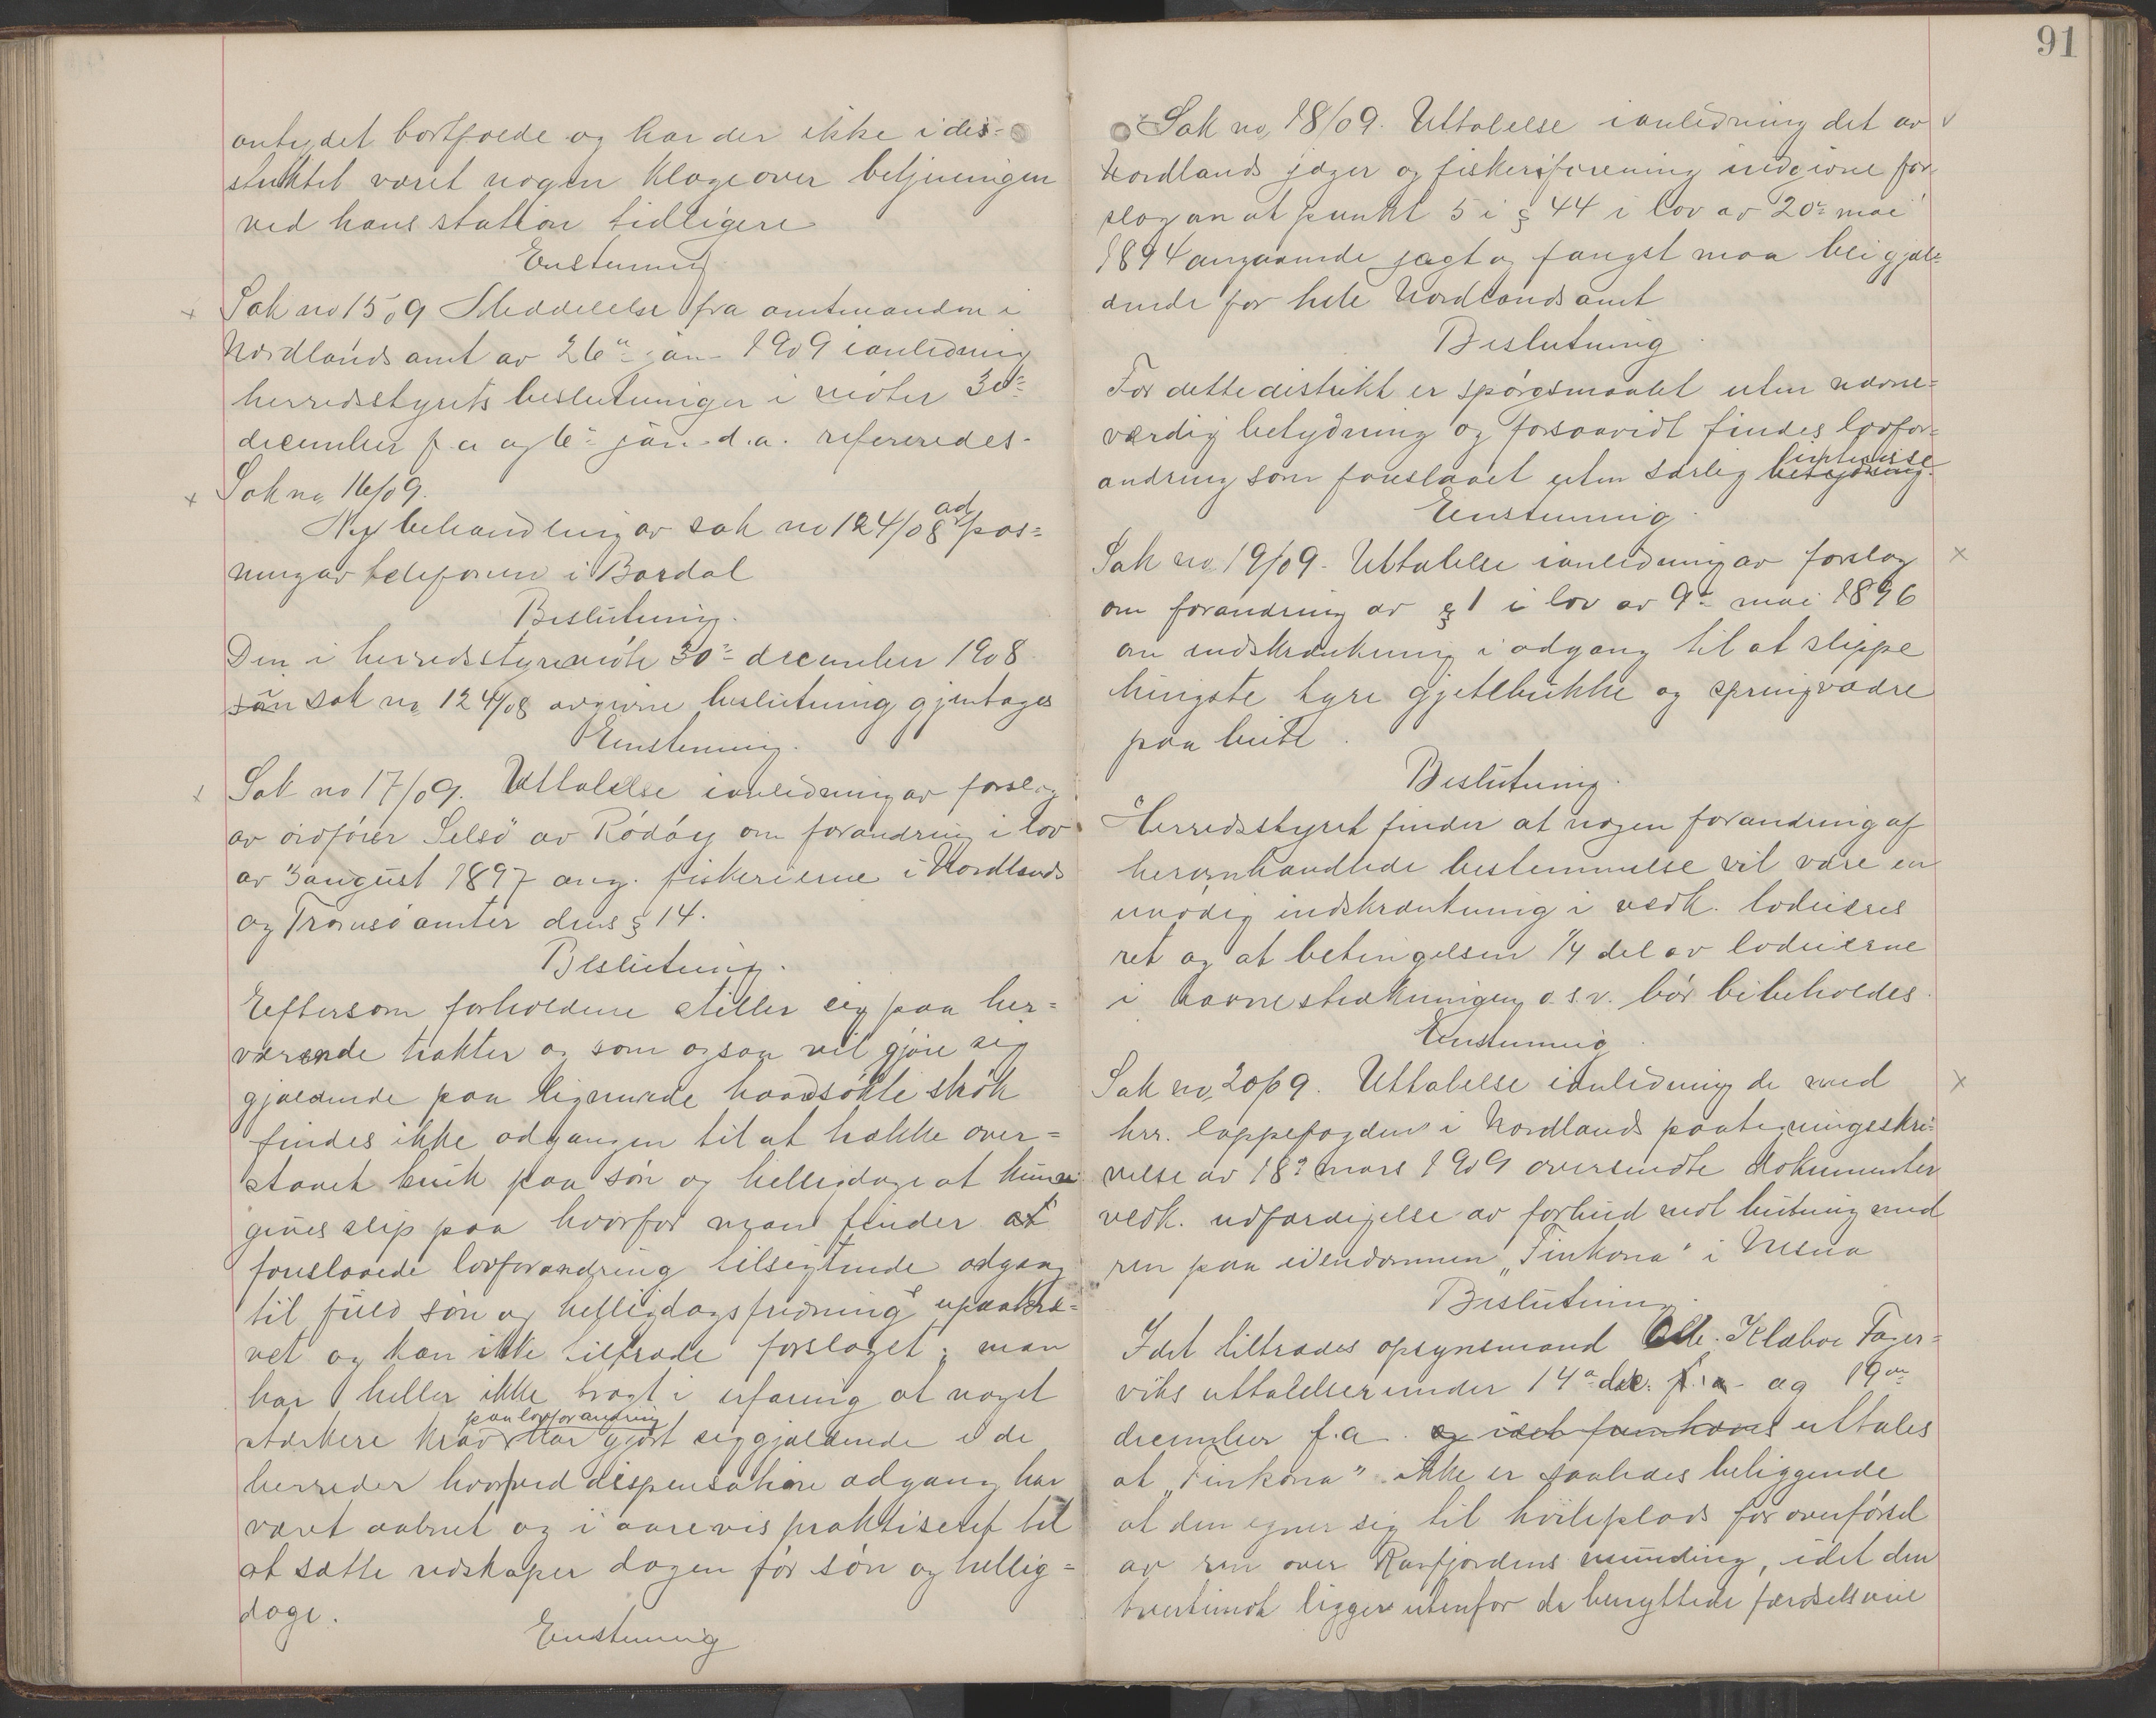 antydet bortfaldt og har der ikke i dis=
striktet været nogen klage over betjeningen
ved hans station tidligere
Enstemmig
Sak no 15/09 Meddelelse fra amtmanden i
Nordlands amt av 26de jan 1909 ianledning
herredsstyrets beslutninger i møter 30te
december f.a og 6te jan. d.a. refereredes.
Sak no 16/09.
Ny behandling av sak no 124/08 ad pas=
ning av telefonen i Bardal
Beslutning.
Den i herredsstyremøte 30te december 1908
i sak no 124/08 avgivne beslutning gjentages
Enstemmig.
Sak no 17/09. Uttalelse ianledning av forslag
av ordfører Selsø av Rødøy om forandring i lov
av 3 august 1897 ang. fiskerierne i Nordlands
og Tromsø amter dens § 14.
Beslutning.
Eftersom forholdene stiller sig paa her=
værende trakter og som ogsaa vil gjøre sig
gjældende paa lignende haardsøkte strøk
findes ikke adgangen til at trække over=
staaet bruk paa søn og helligdage at kunne
gives slip paa hvorfor man finder at
foreslaaede lovforandring tilsigtende adgang
til fuld søn og helligdagsfredning upaakræ=
vet og kan ikke tiltræde forslaget; man
har heller ikke bragt i erfaring at noget
sterkere krav paa lovforandring har gjort sig gjældende i de
herreder hvorved dispensations adgang har
været aabnet og i aarevis praktiseret til
at sætte redskaper dagen før søn og hellig=
dage.
Enstemmig
91
Sak no 18/09. Uttalelse ianledning det av
Nordlands jæger og fiskeriforening indgivne for=
slag om at punkt 5 i § 44 i lov av 20de mai
1894 angaaende jagt og fangst maa bli gjæld=
ende for hele Nordlands amt
Beslutning.
For dette distrikt er spørgsmaalet uten nævne=
værdig betydning og forsaavidt findes lovfor=
andring som foreslaaet uten særlig betydning. interesse
Enstemmig.
Sak no 19/09. Uttalelse ianledning av forslag
om forandring av § 1 i lov av 9de mai 1896
om indskrænkning i adgang til at slippe
hingste tyre gjetebukke og springvædre
paa beite.
Beslutning.
Herredsstyret finder at nogen forandring af
heromhandlede bestemmelse vil være en
unødig indskrænkning i vedk. lodeieres
ret og at betingelsen 1/4 del av lodeierne
i havnestrækningen o.s.v. bør bibeholdes.
Enstemmig.
Sak no 20/09. Uttalelse ianledning de med
hrr. lappefogden i Nordlands paategningsskri=
velse av 18de mars 1909 oversendte dokumenter
vedk. udfærdigelse av forbud mot beitning med
ren paa eiendommen "Finkona" i Nesna
Beslutning.
Idet tiltrædes opsynsmand Klæboe Fager=
viks uttalelser under 14de dec. f.a og 19de
december f.a. og idet fremhæves uttales
at "Finkona" ikke er saaledes beliggende
at den egner sig til hvileplads for overførsel
av ren over Ranfjordens munding, idet den
tvertimot ligger utenfor de benyttede færdselsveie